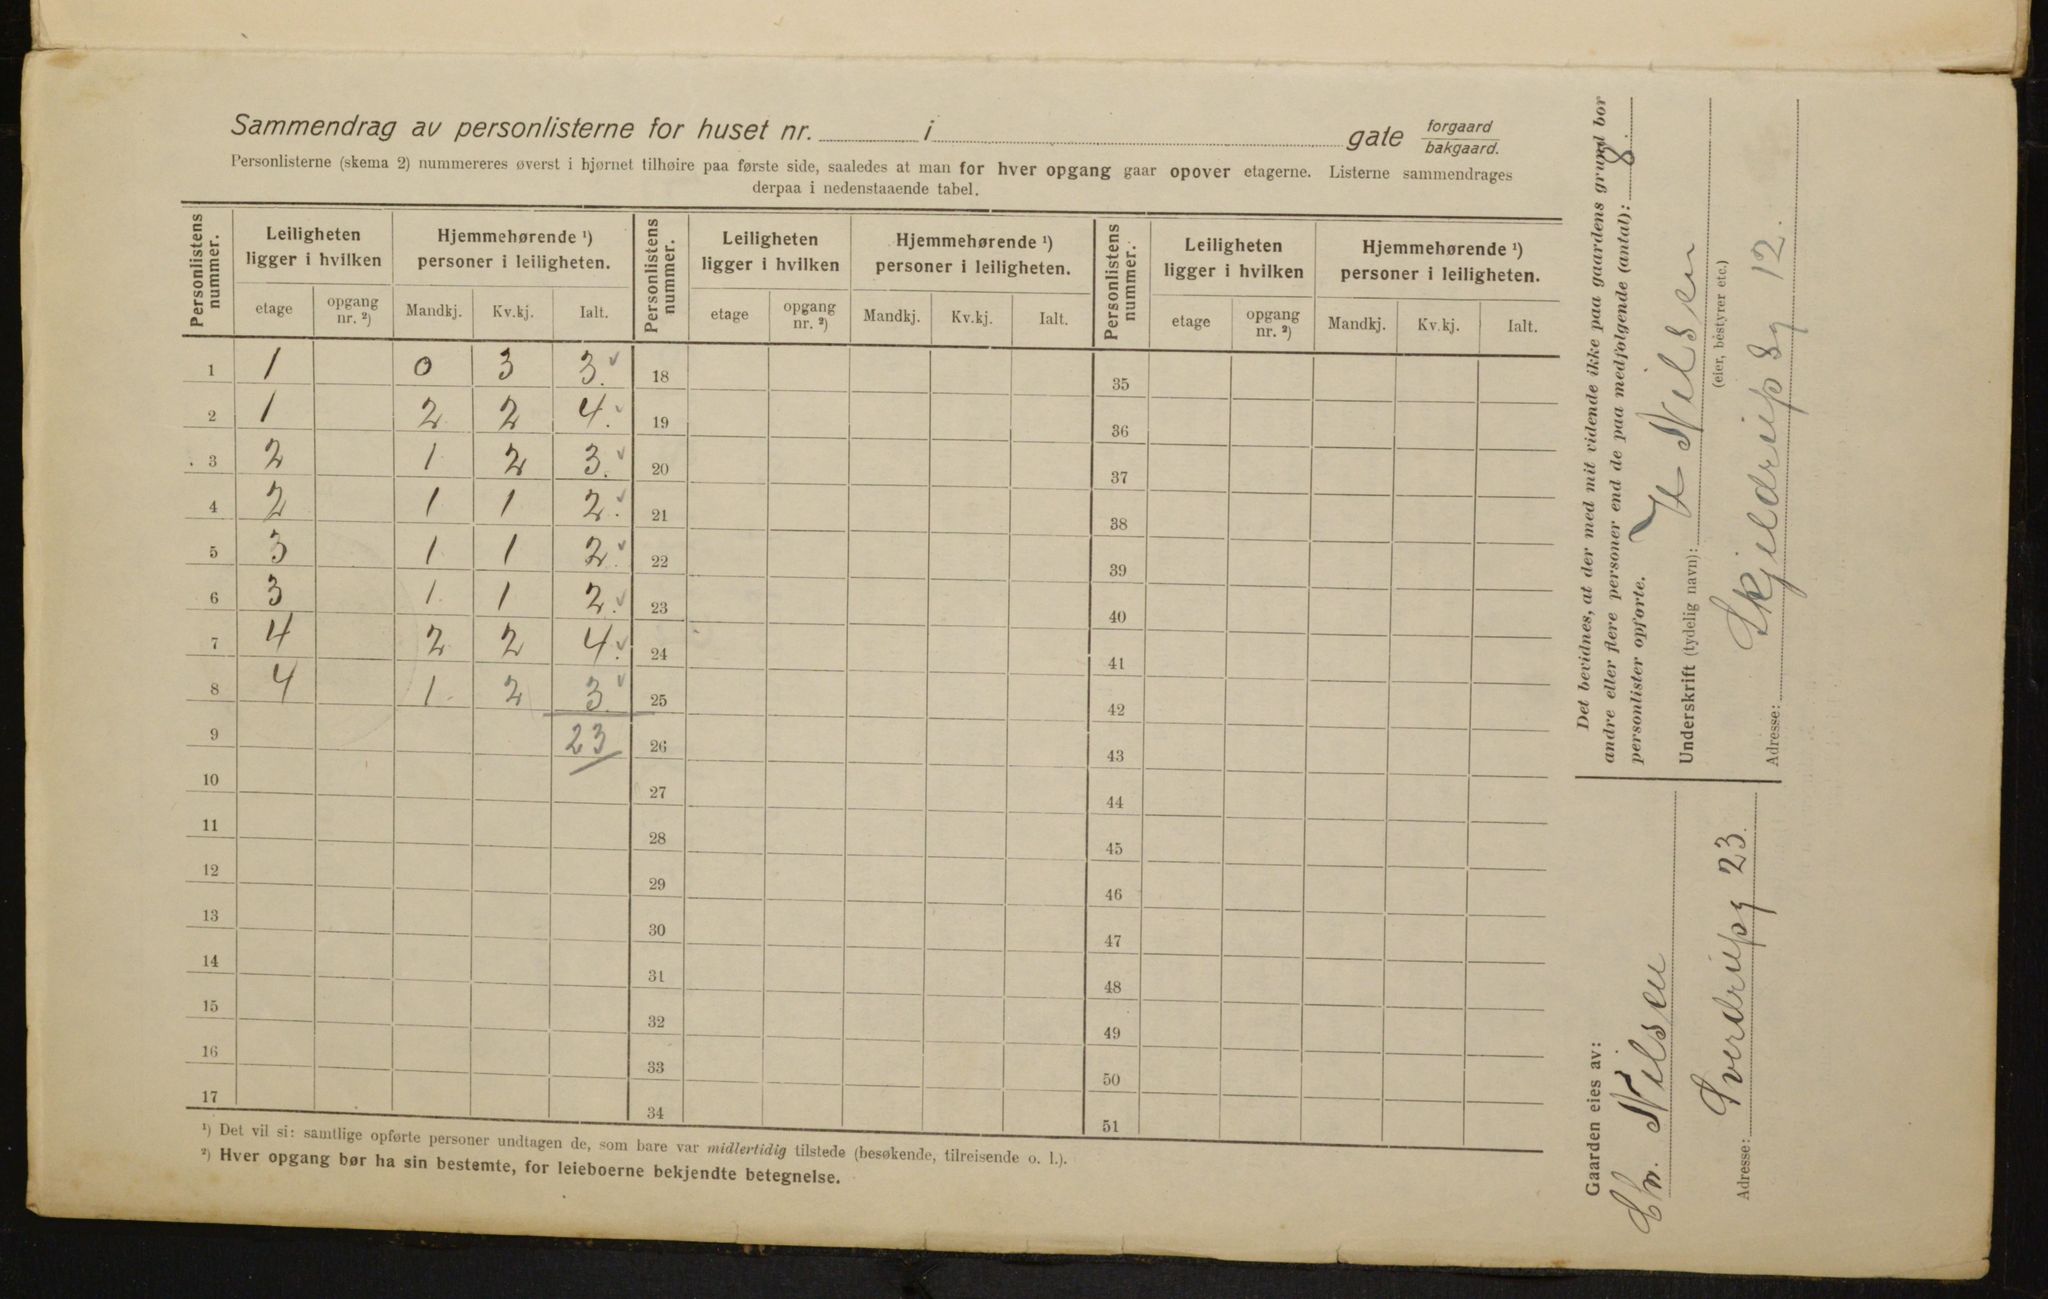 Sammendrag av personlisterne for huset nr. i gate forgaard bakgaard.
Personlisterne (skema 2) nummereres øverst i hjørnet tilhøire paa første side, saaledes at man for hver opgang gaar opover etagerne. Listerne sammendrages
derpaa i nedenstaaende tabel.
Personlistens nummer. Leiligheten ligger i hvilken Hjemmehørende ¹) personer i leiligheten. Personlistens nummer. Leiligheten ligger i hvilken Hjemmehørende ¹) personer i leiligheten. Personlistens nummer. Leiligheten ligger i hvilken Hjemmehørende ¹) personer i leiligheten.
etage opgang nr. ²) Mandkj. Kv.kj. Ialt. etage opgang nr. ²) Mandkj. Kv.kj. Ialt. etage opgang nr. ²) Mandkj. Kv.kj. Ialt.
1 1 0 3 3. 18 35
2 1 2 2 4. 19 36
3 2 1 2 3. 20 37
4 2 1 1 2. 21 38
5 3 1 1 2. 22 39
6 3 1 1 2. 23 40
7 4 2 2 4. 24 41
8 4 1 2 3. 25 42
9 23 26 43
10 27 44
11 28 45
12 29 46
13 30 47
14 31 48
15 32 49
16 33 50
17 34 51
¹) Det vil si: samtlige opførte personer undtagen de, som bare var midlertidig tilstede (besøkende, tilreisende o. l.).
²) Hver opgang bør ha sin bestemte, for leieboerne bekjendte betegnelse.
Det bevidnes, at der med mit vidende ikke paa gaardens grund bor
andre eller flere personer end de paa medfølgende (antal): 8.
personlister opførte.
Underskrift (tydelig navn): Nilsen
(eier, bestyrer etc.)
Adresse: 12.
Gaarden eies av:
Chr. Nilsen
Adresse: 23.